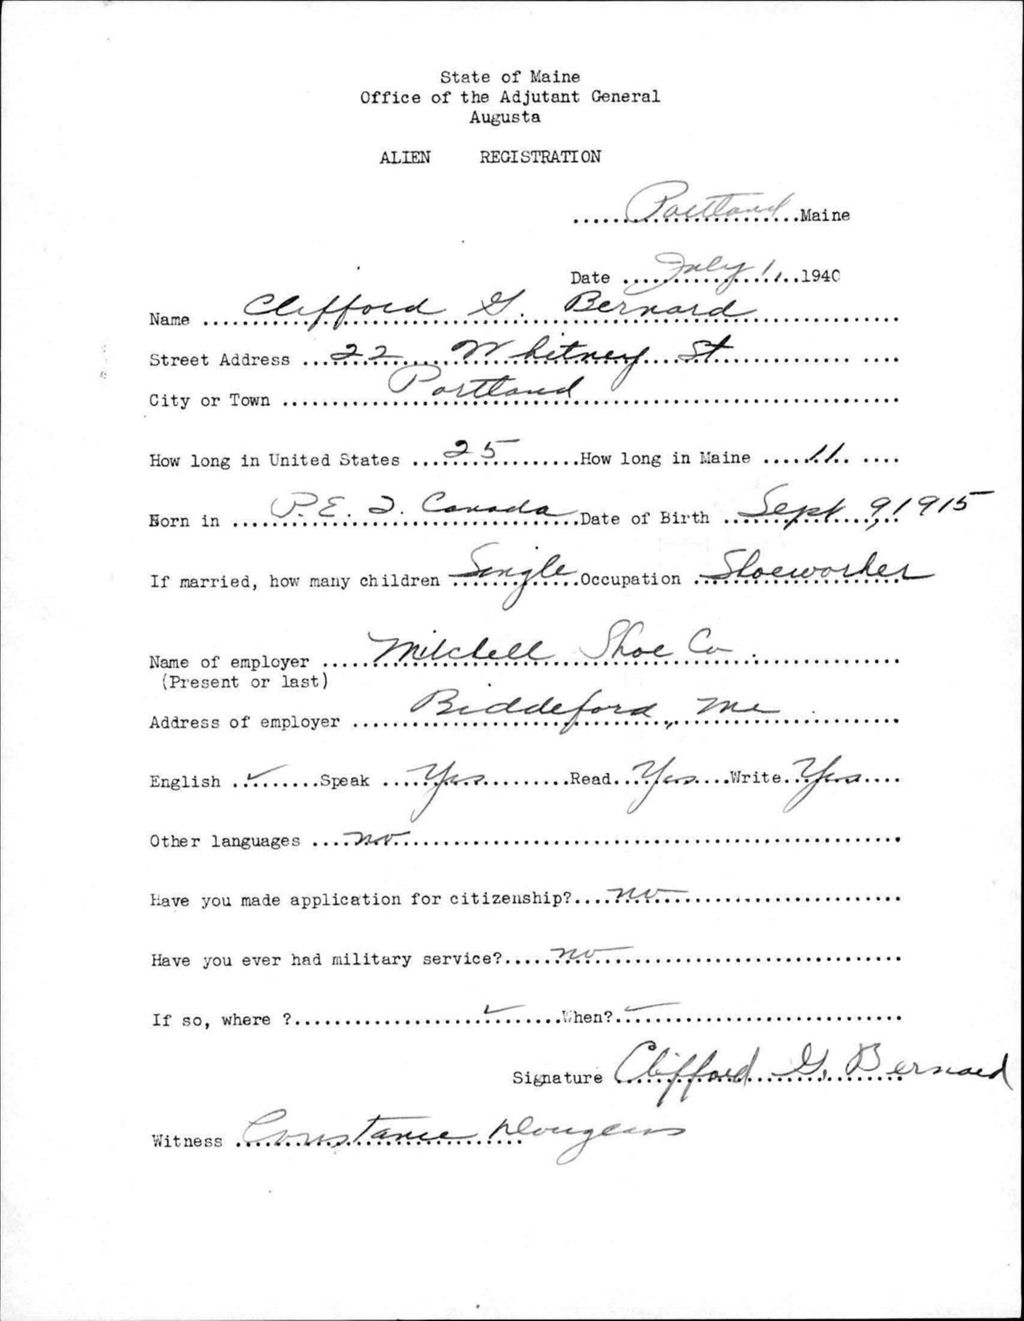 State of Maine
Office of the Adjutant General
Augusta
ALIEN REGISTRATION
Portland Maine
Date July 1, 1940
Name Clifford G. Bernard
Street Address 22 Whitney St
City or Town Portland
How long in United States 25 How long in Maine 11
Born in P.E.I. Canada Date of Birth Sept 9, 1915
If married, how many children Single Occupation Shoeworker
Name of employer Mitchell Shoe Co.
(Present or last)
Address of employer Biddeford, Me
English ✓ Speak Yes Read Yes Write Yes
Other languages no
Have you made application for citizenship? no
Have you ever had military service? no
If so, where ? ✓ When? ✓
Signature Clifford G. Bernard
Witness Constance